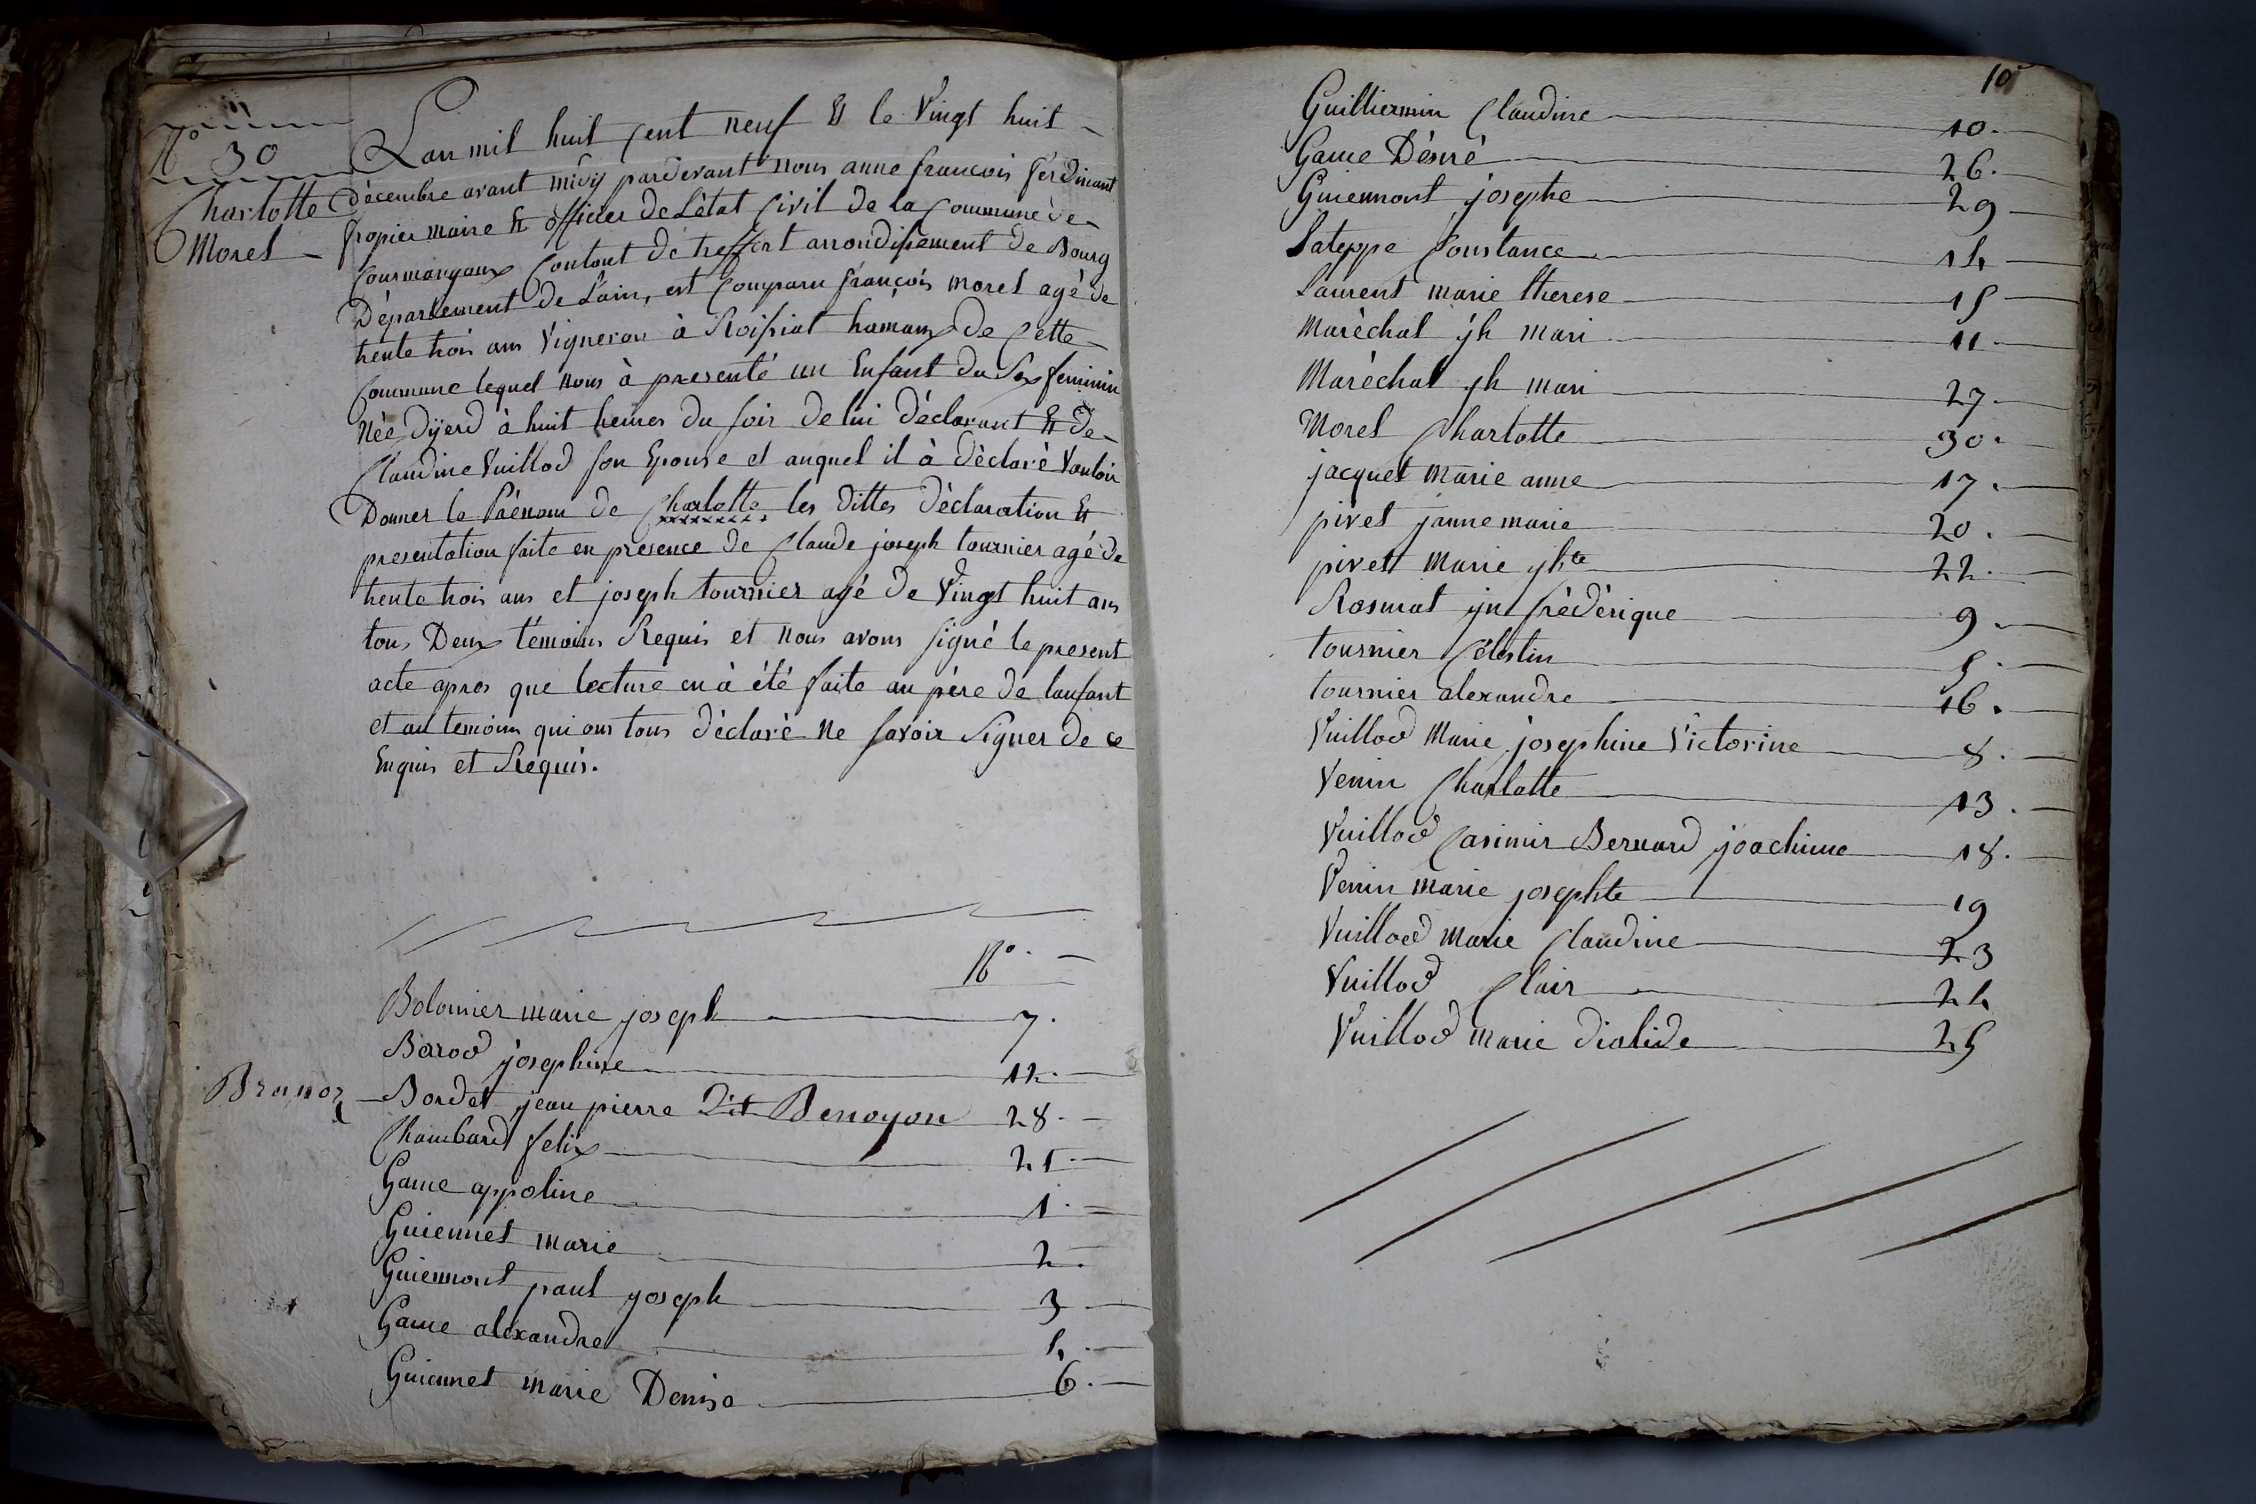 N° 30
Charlotte
Morel
Lan mil huit Cent neuf Et le Vingt huit
décembre avant midÿ pardevant nous anne francois ferdinant
fropier maire Et officier de L'état Civil de la Commune de
Courmangoux Contont de treffort arrondissement de Bourg
Département de L'ain, est Comparu françois morel agé de
trente trois ans Vigneron à Roissiat hamaux de Cette
Commune lequel nous à presenté un Enfant du Sex feminin
Née dÿerd à huit heures du soir de lui déclarant Et de
Claudine Vuillod son Epouse et auquel il à déclaré Vouloir
Donner le Prénom de Charlotte les dittes déclaration Et
presentation faite en presence de Claude joseph tournier agé de
trente trois ans et joseph tournier agé de Vingt huit ans
tous Deux témoins Requis et nous avons signé le present
acte apres que lecture en à été faite au père de lanfant
et au temoins qui ons tous déclaré ne savoir signer de ce
Enquis et Requis.
N°.
Bolomier marie joseph 7.
Barod josephine 12.
Branoz Bordet jean pierre Dit Benoyon 28.
Chambard felix 21.
Game appoline 1.
Guiennet marie 2.
Guiennont paul joseph 3
Game alexandre 4.
Guiennet marie Denise 6.
10
Guilliermin Claudine 10.
Game Désiré 26.
Guiennont josephe 29
Lateppe Constance 14
Laurent marie therese 15
Maréchal jh mari 11
Maréchal jh mari 27.
Morel Charlotte 30.
jacquet marie anne 17.
pivet jannemarie 20.
pivet marie jhte 22.
Rosmat jn frédérique 9.
tournier Célestin 5.
tournier alexandre 16.
Vuillod Marie josephine Victorine 8.
Venin Charlotte 13.
Vuillod Casimir Bernard joachime 18.
Venin marie josephte 19
Vuillod marie Claudine 23
Vuillod Clair 24
Vuillod marie dialide 25